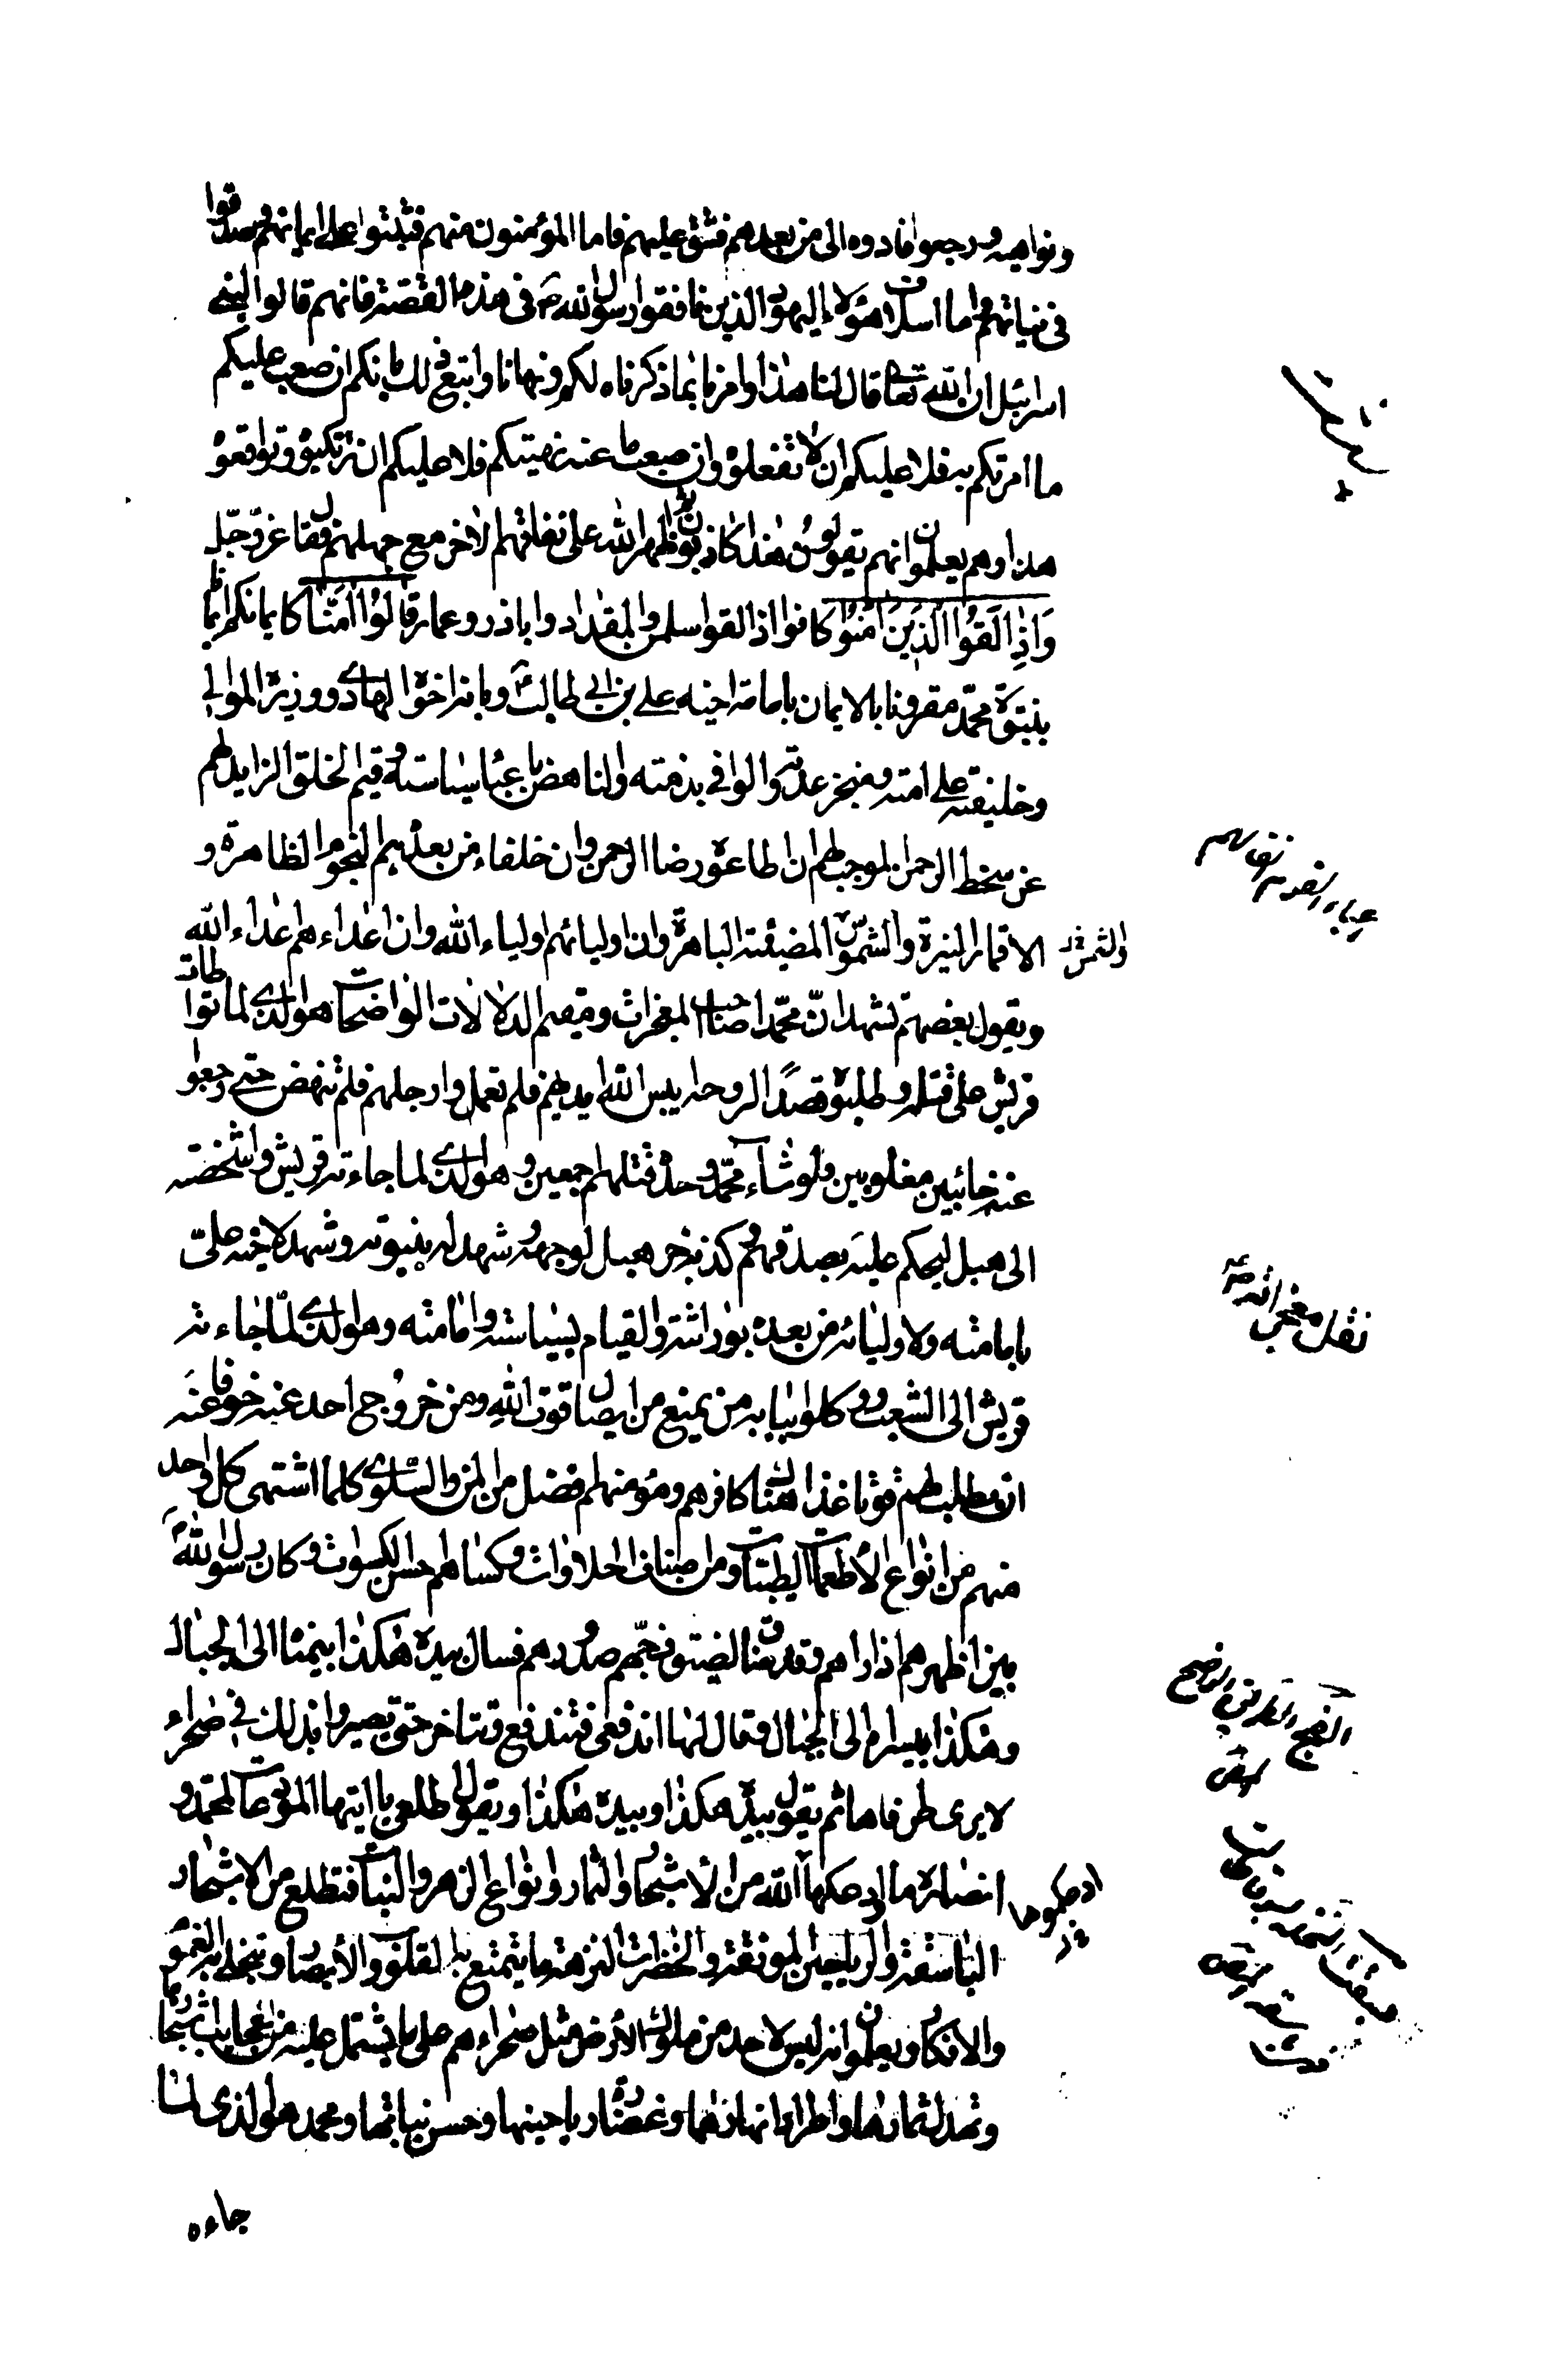 ونواهيه ورجعوا فادوه الى من بعدهم فشق عليهم فاما المؤمنون منهم فثبتوا على ايمانهم وصدقوا
في نياتهم واما اسلاف هؤلاء اليهود الذين نافقوا رسول الله ص في هذه القصة فانهم قالوا لبني
اسرائيل ان الله تعالى قال لنا هذا وامرنا بما ذكرناه لكم ونهانا واتبع ذلك بانكم ان صعب عليكم
ما امرتكم به فلا عليكم ان لا تفعلوه وان صعب ما عنه نهيتكم فلا عليكم ان ترتكبوه وتواقعوه
هذا وهم يعلمون انهم بقولهم هذا كاذبون ثم اظهر الله على نفاقهم الاخر مع جهلهم فقال عز وجل
وَاِذَا لَقُوا الَّذِينَ اٰمَنُوا كانوا اذا لقوا سلمن والمقداد واباذر وعمار قَالُوا اٰمَنَّا كايمانكم ايمانا
بنبوة محمد مقرونا بالايمان بامامة اخيه علي بن ابي طالب ع وبانه اخوه الهادي ووزيره الموالي
وخليفته على امته ومنجز عدته والوافي بذمته والناهض باعباء سياسته وقيم الخلق الزايد لهم
عن سخط الرحمن الموجب لهم ان اطاعوه رضا الرحمن وان خلفاءه من بعده هم النجوم الظاهرة و
الاقمار المنيرة والشموس المضيئة الباهرة وان اوليائهم اولياء الله وان اعداءهم اعداء الله
ويقول بعضهم نشهد ان محمدا صاحب المعجزات ومقيم الدلالات الواضحات هو الذي لما تواطات
قريش على قتله وطلبوه قصدا لروحه يبس الله ايديهم فلم تعمل وارجلهم فلم تنهض حتى رجعوا
عنه خائبين مغلوبين ولو شاء محمد وحده قتلهم اجمعين وهو الذي لما جاءته قريش واشخصته
الى هبل ليحكم عليه بصدقهم وكذبه خر هبل لوجهه وشهد له بنبوته وشهد لاخيه علي
بامامته ولاوليائه من بعده بوراثته والقيام بسياسته وامامته وهو الذي لما جاءته
قريش الى الشعب ووكلوا ببابه من يمنع من ايصال قوت الله ومن خروج احد عنه خوفا عنه
ان يطلب لهم قوتا غذا هناك كافرهم ومؤمنهم افضل من المن والسلوى كلما اشتهى كل واحد
منهم من انواع الاطعمات الطيبات ومن اصناف الحلاوات وكساهم احسن الكسوات وكان رسول الله ص
بين اظهرهم اذا راهم وقد ضاق لضيق فجهم صدورهم فسال بيده هكذا بيمناه الى الجبال
وهكذا بيسراه الى الجبال وقال لها اندفعي فتندفع وتتاخر حتى يصيروا بذلك في صحراء
لا يرى طرفاها ثم يقول بيده هكذا وبيده هكذا ويقول اطلعي يا ايتها المودعات لمحمد و
انصاره ما اودعكها الله من الاشجار والثمار وانواع الزهر والنبات فتطلع من الاشجار
الباسقة والرياحين المونقة والخضرات النزهة ما يتمتع به القلوب والابصار وتنجلي به الغموم
والافكار ويعلمون انه ليس لاحد من ملوك الارض مثل صحراءهم على ما يشتمل عليه من عجايب اشجارها
وتهدل ثمارها واطراد انهارها وغضارة رياحينها وحسن نباتها ومحمد هو الذي لما
جاءه
والشمس خ
نقل معجز النبي ص
الفج الطريق الواضح
اودعكموها خ